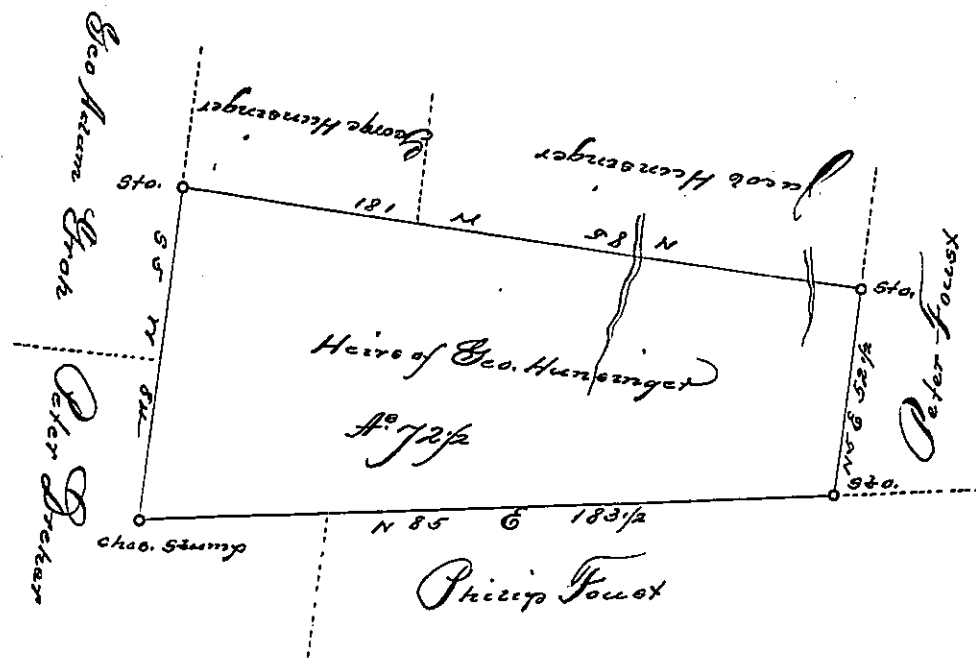 Geo Adam Groh
George Hunsinger
Jacob Hunsinger
Sto.
181 W
N 86
Sto.
S 5 W
84
Heirs of Geo. Hunsinger
As. 72 1/2
Peter Foust
N 5 E 52 1/2
Sto.
Peter Dreher
Chas. Stump
N 85 E 183 1/2
Philip Foust